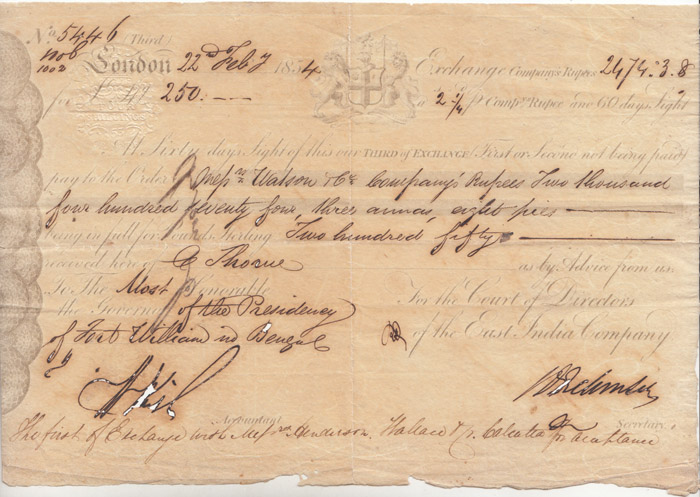 No 5446 Third
1006
1002
London 22nd Feby 1854 Exchange Company's Rupees 2474.3.8
for £ 250.-- a 2/ Compy's Rupee and 60 days Sight
At Sixty days Sight of this our THIRD of EXCHANGE (First or Second not being paid)
pay to the Order of Messrs Watson & Co Company's Rupees Two thousand
four hundred seventy four, three annas, eight pies
being in full for Pounds Sterling Two hundred fifty
received here of as by Advice from us.
To The Most Honorable For the Court of Directors
the Governor of the Presidency of the East India Company
of Fort William in Bengal
Accountant Secretary
The first of Exchange with Messrs Henderson, Wallace & Co. Calcutta for acceptance